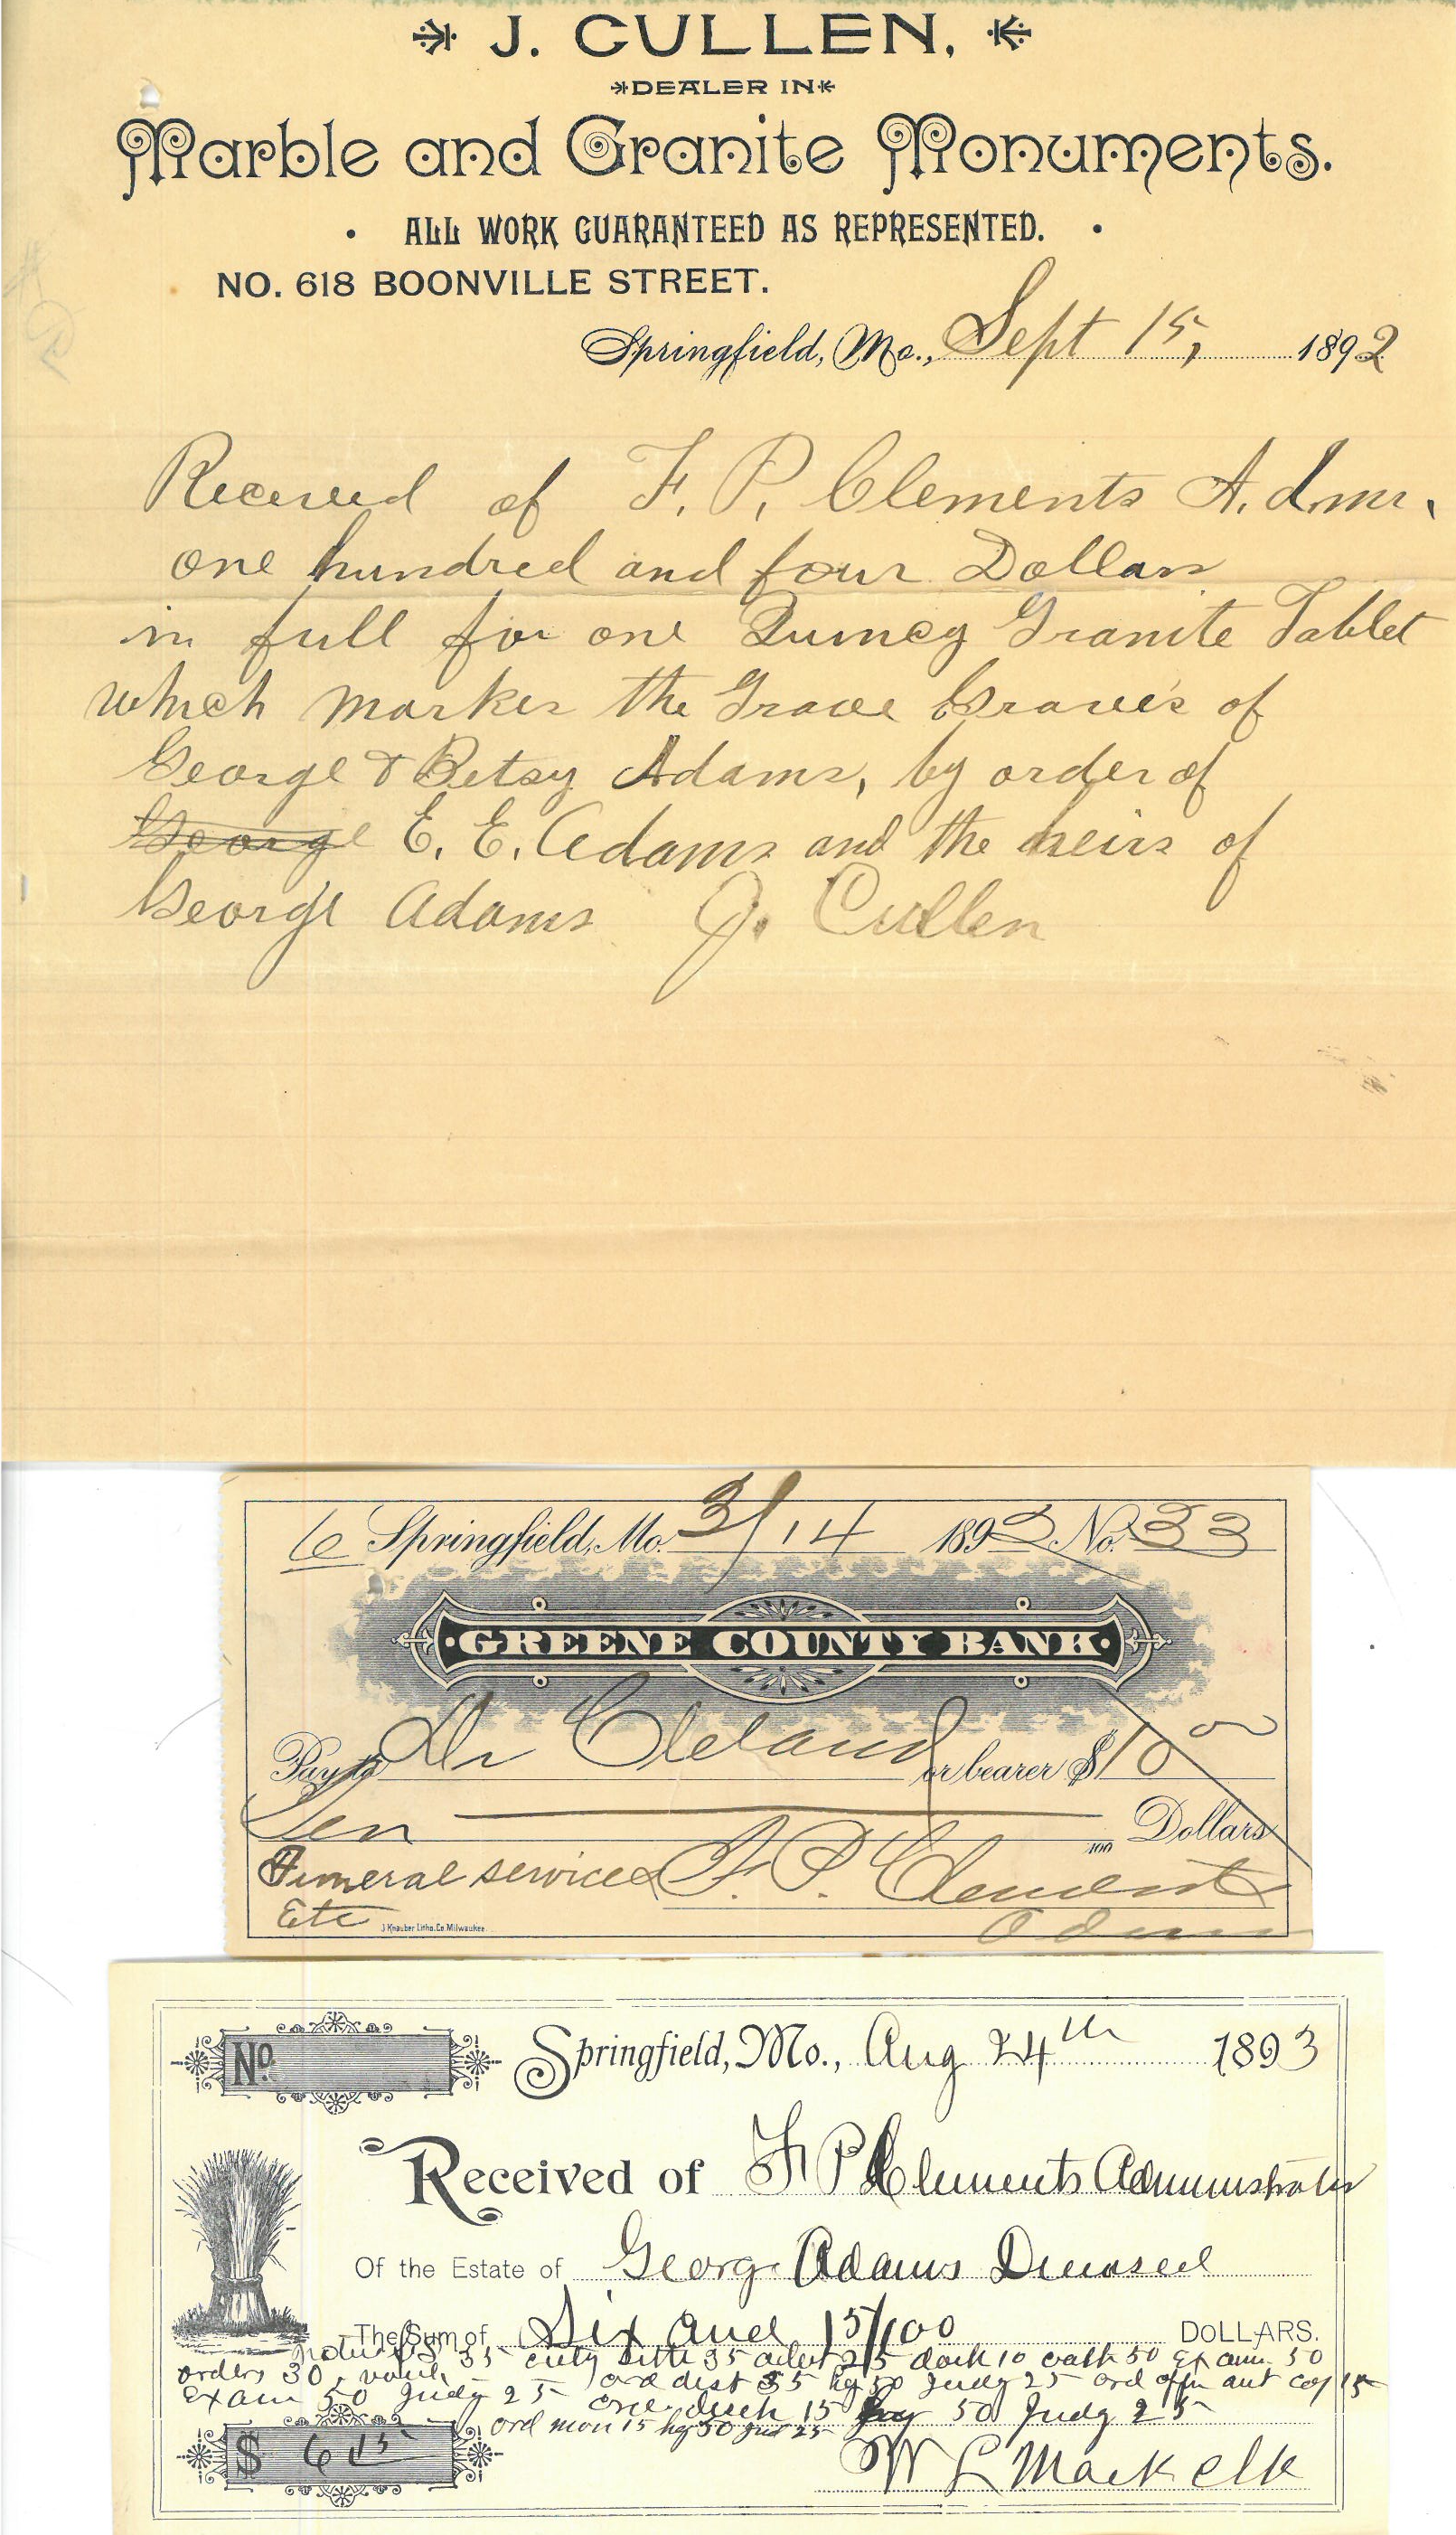 J. CULLEN,
DEALER IN
Marble and Granite Monuments.
ALL WORK GUARANTEED AS REPRESENTED.
NO. 618 BOONVILLE STREET.
Springfield, Mo., Sept 15, 1892
Received of F. P. Clements Admr.
one hundred and four Dollars
in full for one Quincy Granite Tablet
which markes the Grave Grave's of
George & Betsy Adams, by order of
George E. E. Adams and the heirs of
George Adams J. Cullen
Springfield, Mo. 3/14 1892 No. 33
GREENE COUNTY BANK
Pay to Dr Cleland or bearer $10 00
Ten Dollars
100
Funeral services F. P. Clements
Etc J Knauber Litho. Co Milwaukee. Adm
No. Springfield, Mo., Aug 24th 1893
Received of F P Clements Administrator
Of the Estate of George Adams Deceased
The Sum of Six and 15/100 DOLLARS.
35 35 25 dock 10 oath 50 Exam 50
orders 30, ord dist 35 hg 50 Judg 25 ord aut cop 15
Exam 50 Judg 25 15 50 Judg 25
ord mon 15 hg 50 Jud 25
$ 6.15 W L Mack elk